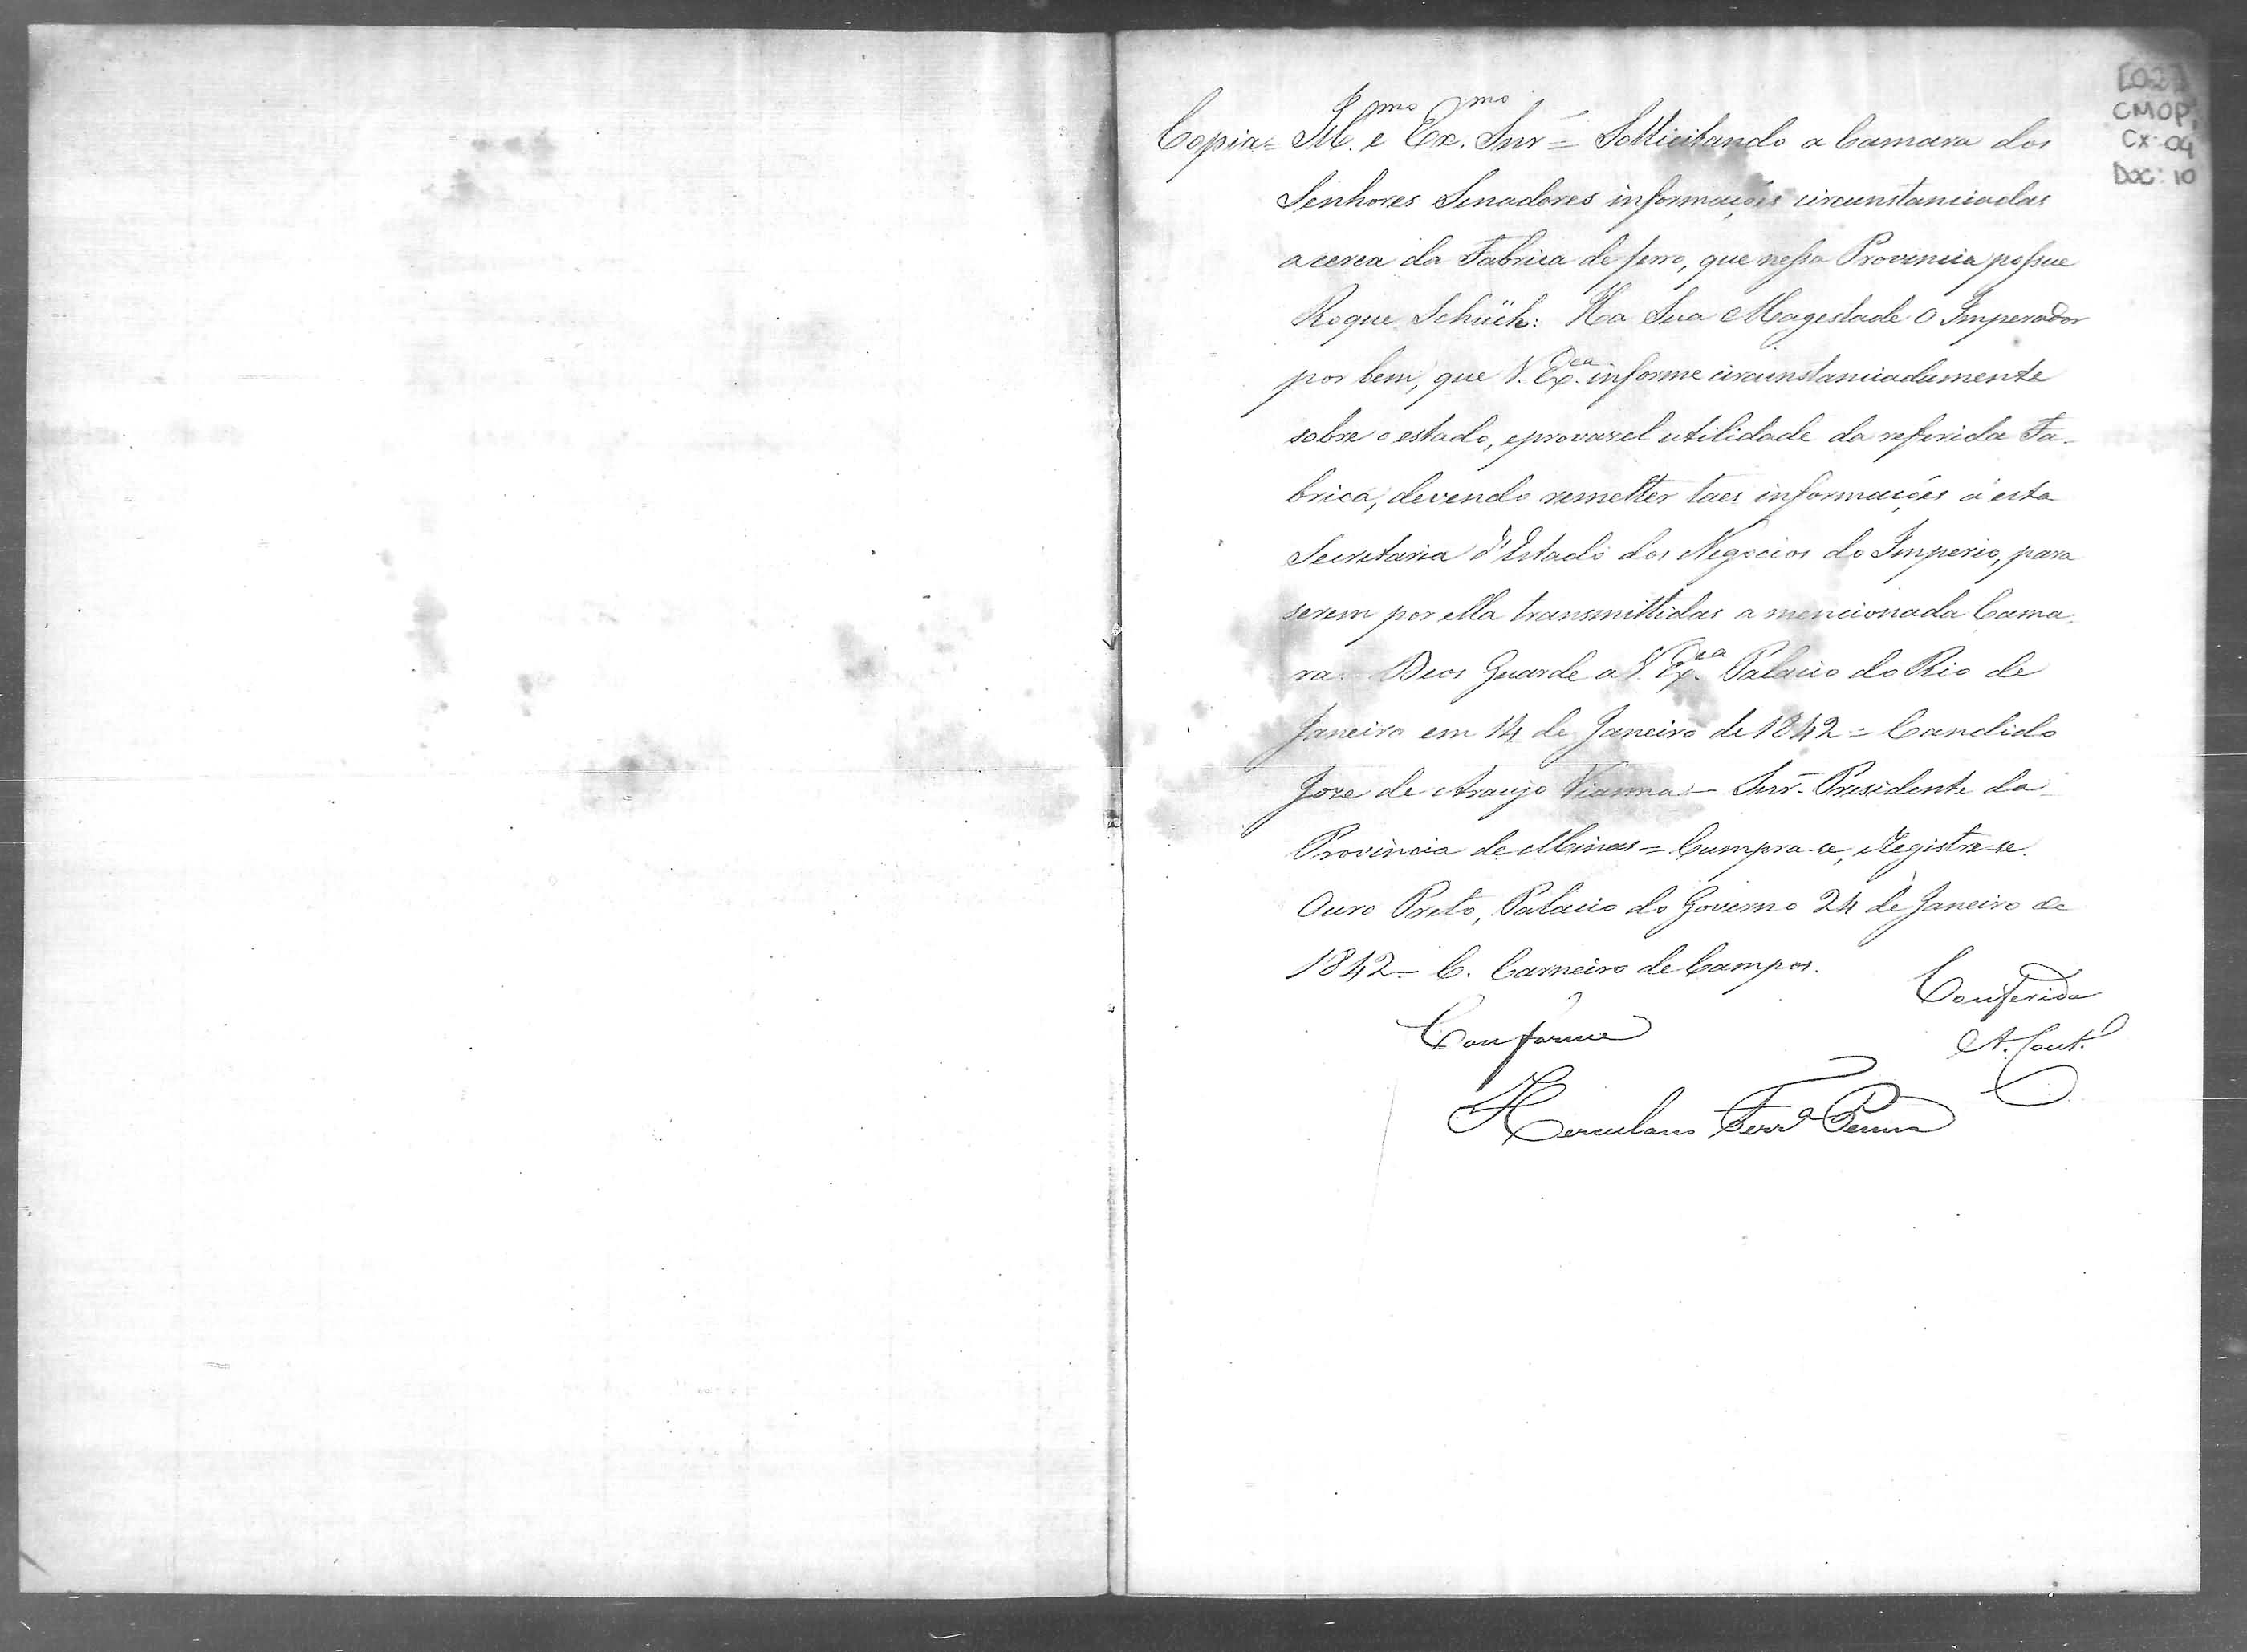 [02]
CMOP,
CX: 04
DOC: 10
Copia = Ill.mo e Ex.mo Snr = Sollicitando a Camara dos
Senhores Senadores informações circunstanciadas
acerca da Fabrica de ferro, que nessa Provincia possue
Roque Schüch: Ha Sua Magestade O Imperador
por bem, que V. Ex.cia informe circunstanciadamente
sobre o estado, e provavel utilidade da referida Fa-
brica, devendo remetter taes informações á esta
Secretaria d'Estado dos Negocios do Imperio, para
serem por ella transmittidas a mencionada Cama-
ra. Deos Guarde a V. Ex.cia Palacio do Rio de
Janeiro em 14 de Janeiro de 1842 = Candido
Joze de Araujo Vianna - Snr. Presidente da
Provincia de Minas = Cumpra-se, e Registre-se.
Ouro Preto, Palacio do Governo 24 de Janeiro de
1842 - C. Carneiro de Campos.
Conferida
Conforme
A. Cout.º
Herculano Ferr.ª Penna